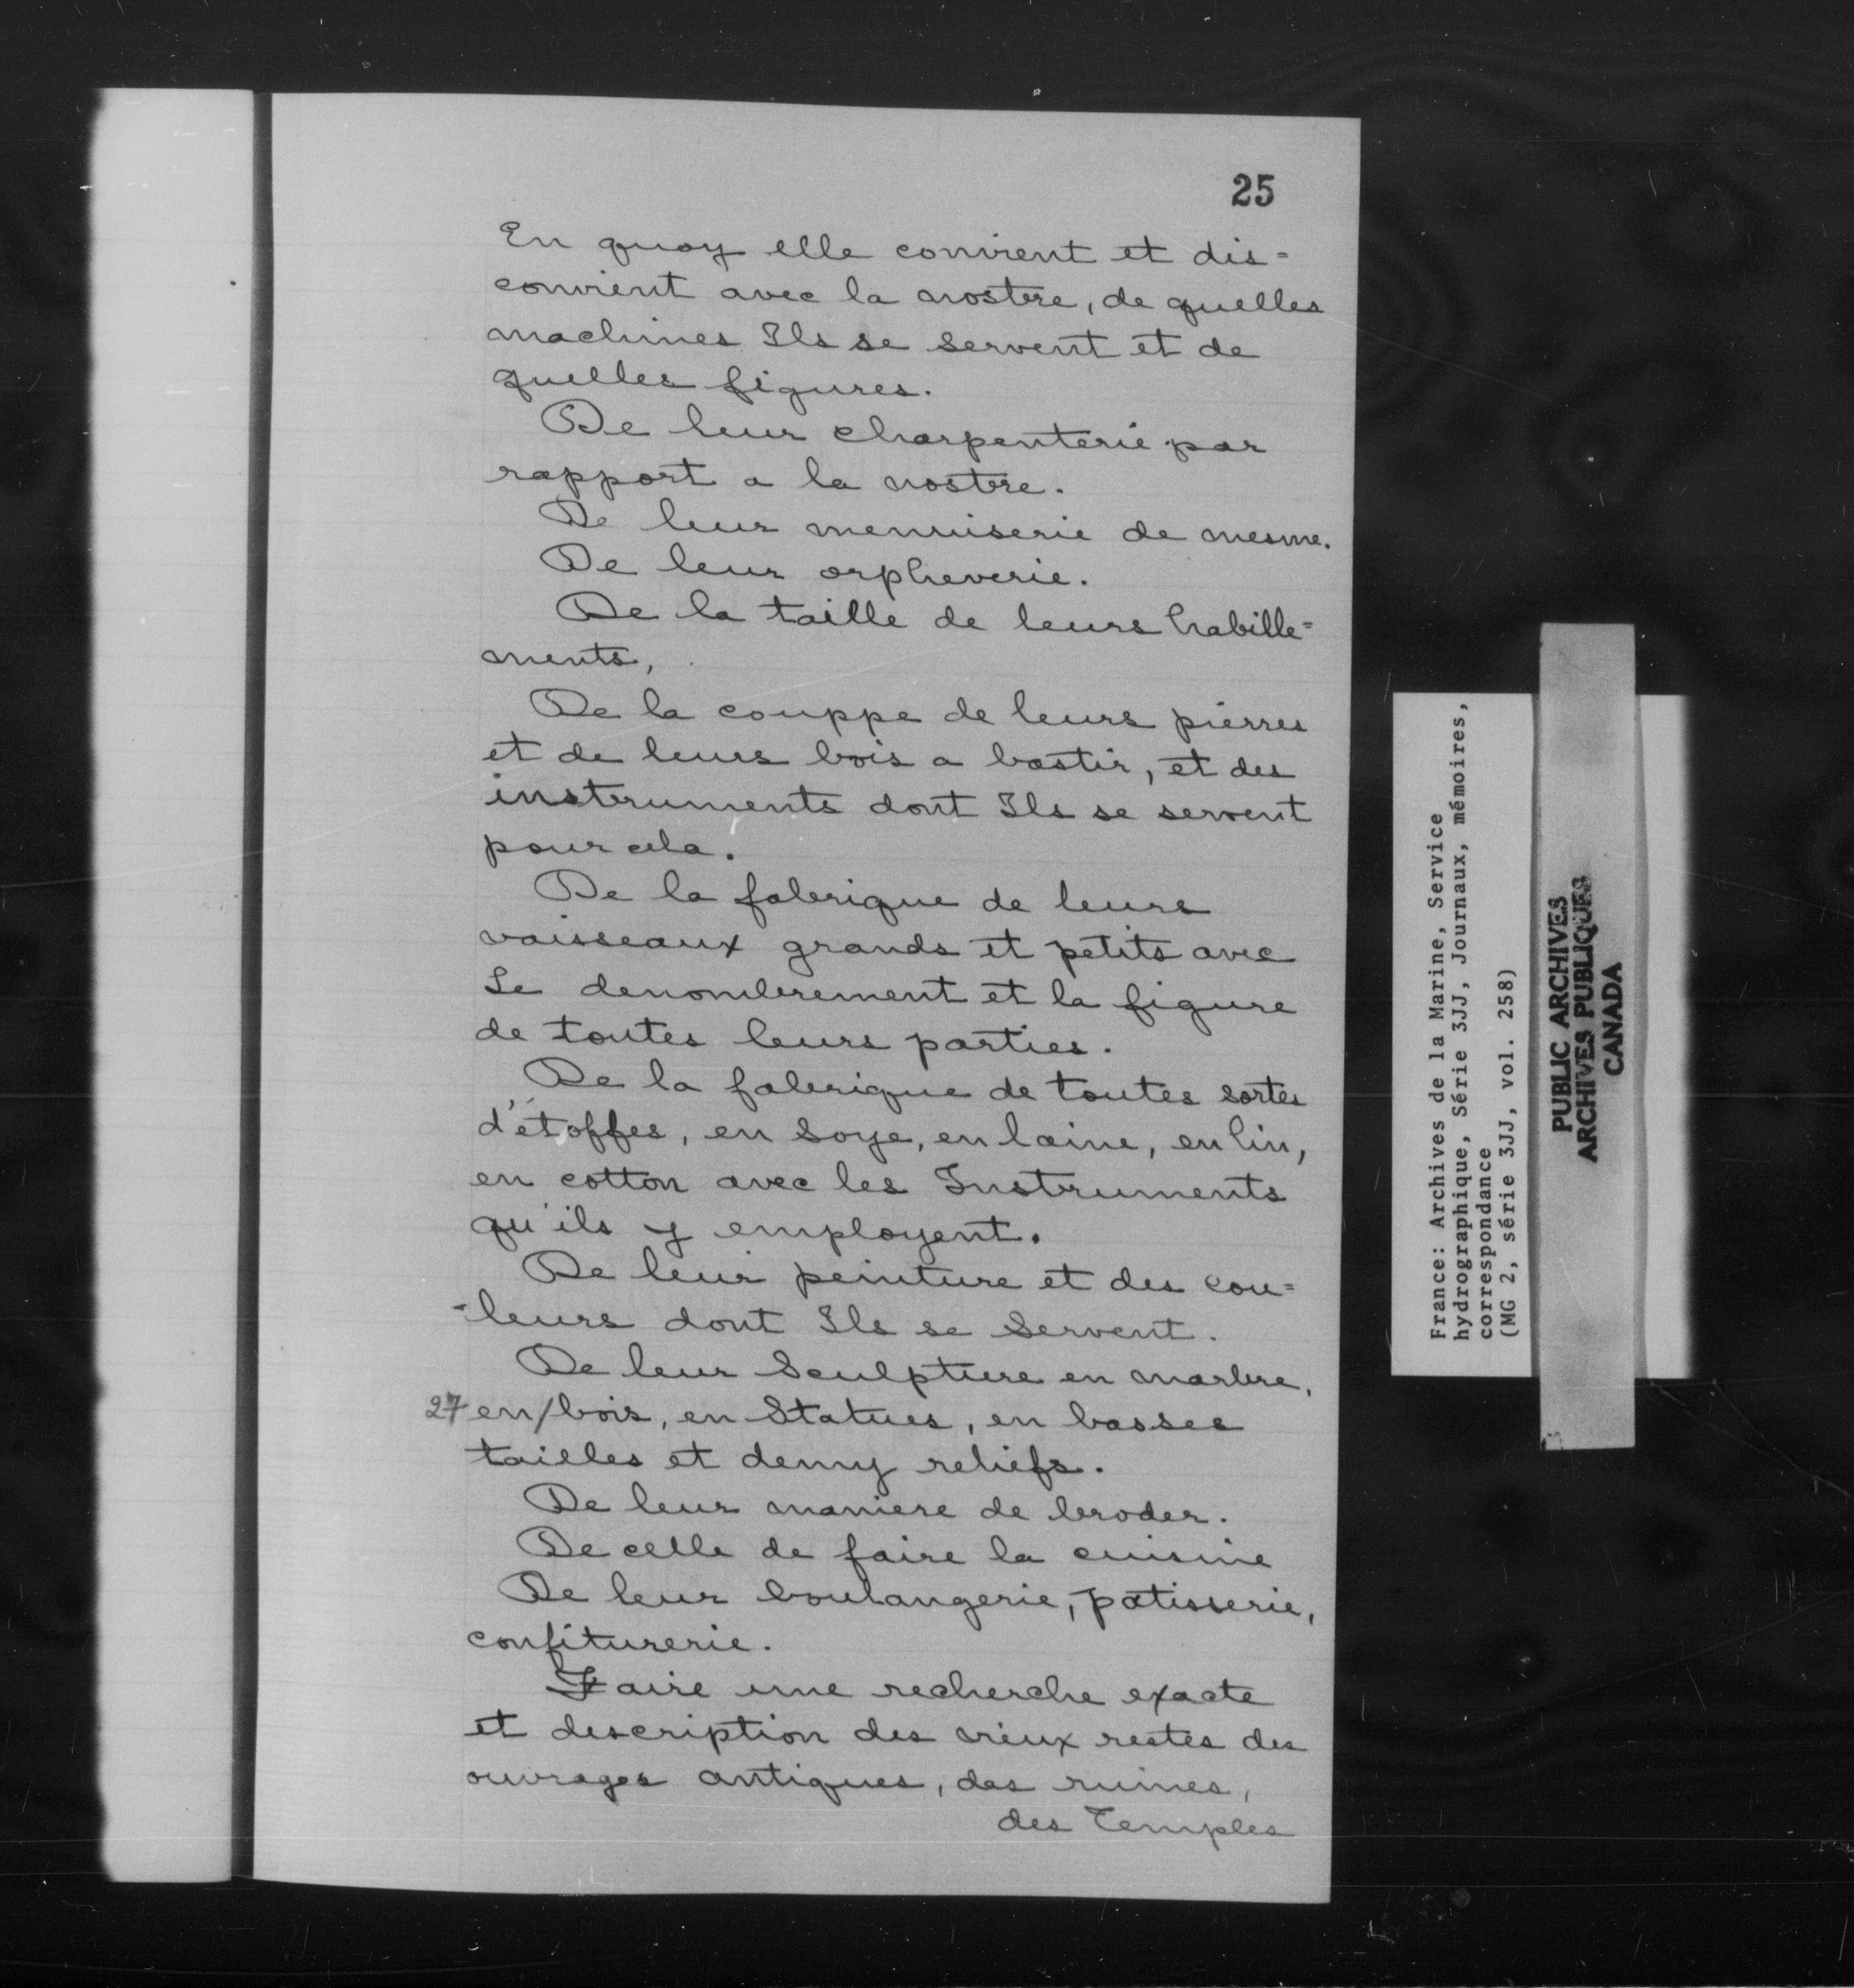 25
En quoy elle convient et dis=
convient avec la nostre, de quelles
machines Ils se servent et de
quelles figures.
De leur charpenterie par
rapport a la nostre.
De leur menuiserie de mesme.
De leur orpheverie.
De la taille de leurs habille=
ments,
De la couppe de leurs pierres
et de leurs bois a bastir, et des
instruments dont Ils se servent
pour cela.
De la fabrique de leurs
vaisseaux grands et petits avec
Le denombrement et la figure
de toutes leurs parties.
De la fabrique de toutes sortes
d'étoffes, en soye, en laine, en lin,
en cotton avec les Instruments
qu'ils y employent.
De leur peinture et des cou=
-leurs dont Ils se servent.
De leur Sculpture en marbre,
27 en/bois, en Statues, en basses
tailles et demy reliefs.
De leur maniere de broder.
De celle de faire la cuisine
De leur boulangerie, patisserie,
confiturerie.
Faire une recherche exacte
et description des vieux restes des
ouvrages antiques, des ruines,
des Temples
France: Archives de la Marine, Service
hydrographique, Série 3JJ, Journaux, mémoires,
correspondance
(MG 2, série 3JJ, vol. 258)
PUBLIC ARCHIVES
ARCHIVES PUBLIQUES
CANADA